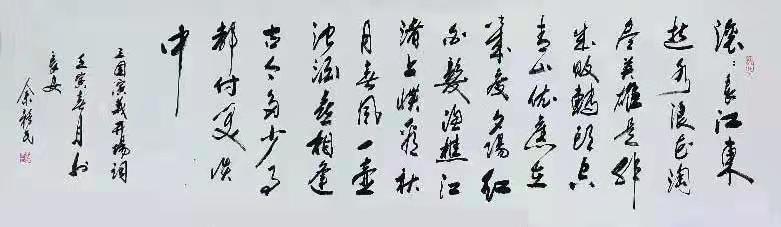 滚:长江東
逝水浪花淘
尽英雄是非
成败轉頭空
青山依舊在
幾度夕陽红
白髮渔樵江
渚上慣看秋
月春风一壶
浊酒喜相逢
古今多少事
都付笑谈
中
三国演义开场词
壬寅春月於
长安
余 民